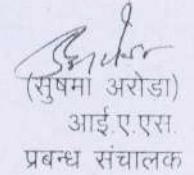 (सुषमा अरोडा)
आई.ए.एस.
प्रबन्ध संचालक